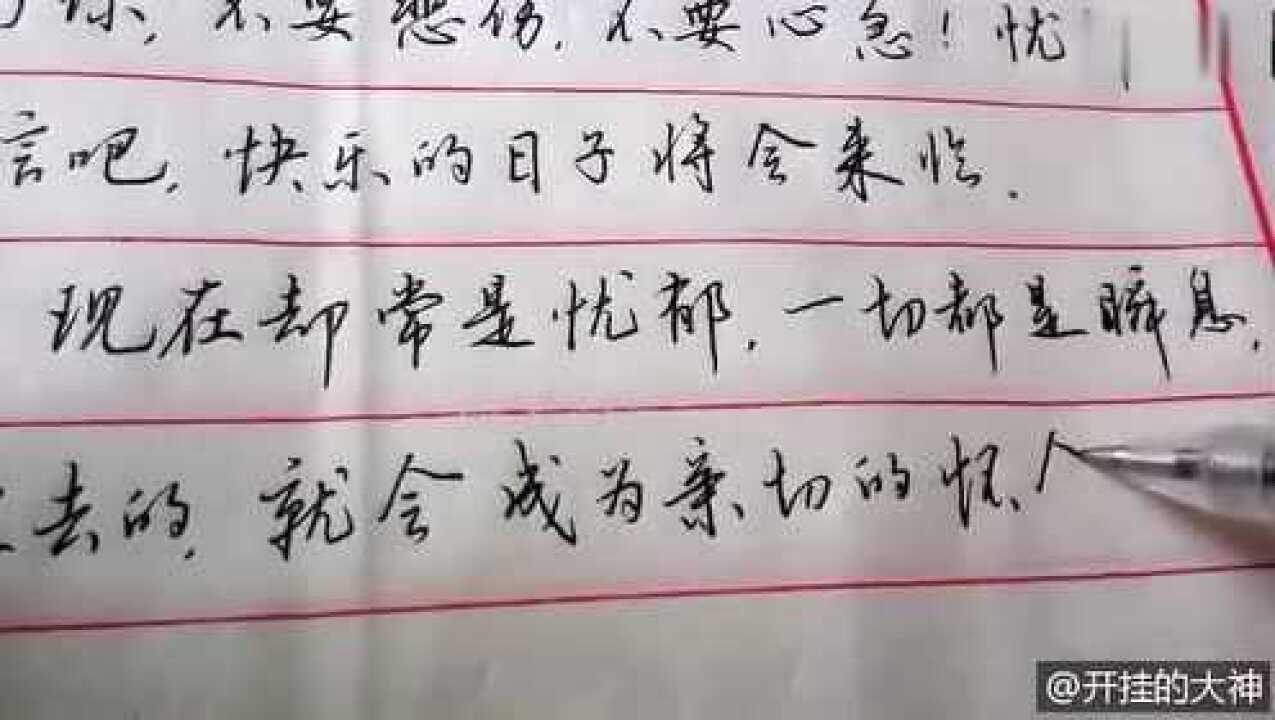 你, 不要悲伤, 不要心急! 忧
言吧, 快乐的日子将会来临.
现在却常是忧郁. 一切都是瞬息,
去的, 就会成为亲切的怀
@开挂的大神